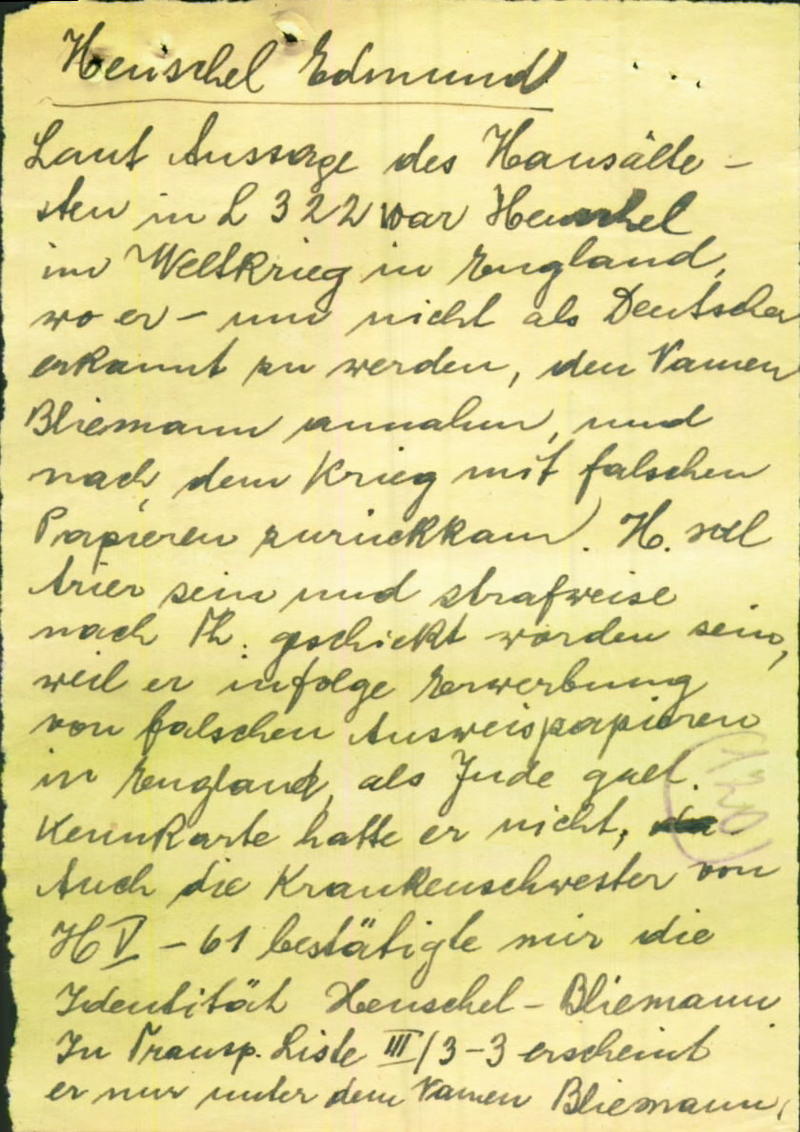 Henschel Edmund
Laut Aussage des Hausälte-
sten in L 322 war Henschel
im Weltkrieg in England,
wo er – um nicht als Deutscher
erkannt zu werden, den Namen
Bliemann annahm, und
nach dem Krieg mit falschen
Papieren zurückkam. H. soll
Arier sein und strafweise
nach Th. geschickt worden sein,
weil er infolge Erwerbung
von falschen Ausweispapieren
in England, als Jude galt.
Kennkarte hatte er nicht,
Auch die Krankenschwester von
H V – 61 bestätigte mir die
Identität Henschel – Bliemann
In Transp. Liste III/3-3 erscheint
er nur unter dem Namen Bliemann,
(120)